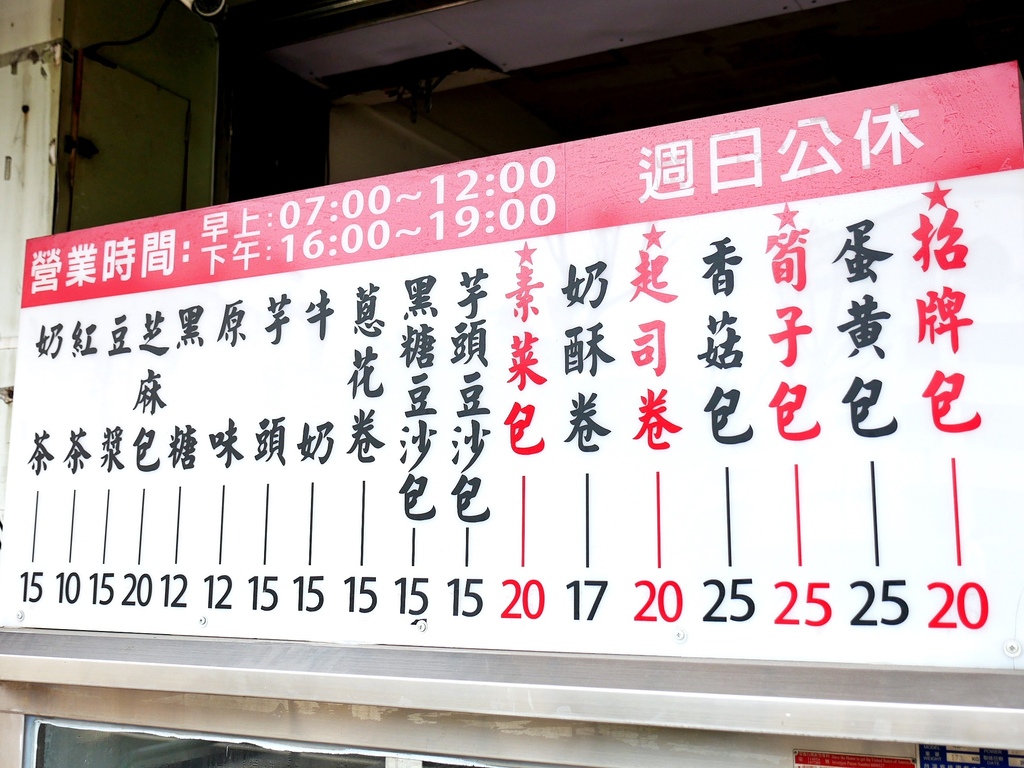 營業時間:
早上:07:00~12:00
下午:16:00~19:00
週日公休
★招牌包 20
蛋黃包 25
★筍子包 25
香菇包 25
★起司卷 20
奶酥卷 17
★素菜包 20
芋頭豆沙包 15
黑糖豆沙包 15
蔥花卷 15
牛奶 15
芋頭 15
原味 12
黑糖 12
芝麻包 20
豆漿 15
紅茶 10
奶茶 15